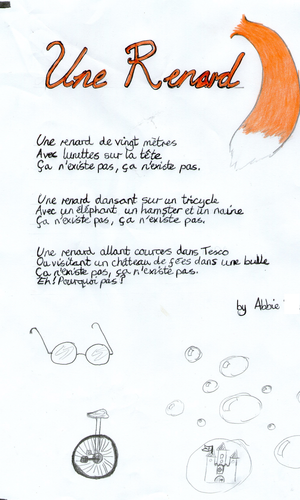 Une Renard
Une renard de vingt mètres
Avec lunettes sur la tête
Ça n'existe pas, ça n'existe pas.
Une renard dansant sur un tricycle
Avec un éléphant un hamster et un naine
Ça n'existe pas, ça n'existe pas.
Une renard allant courses dans Tesco
Ou visitant un château de fées dans une bulle
Ça n'existe pas, ça n'existe pas.
Eh! Pourquoi pas?
by Abbie